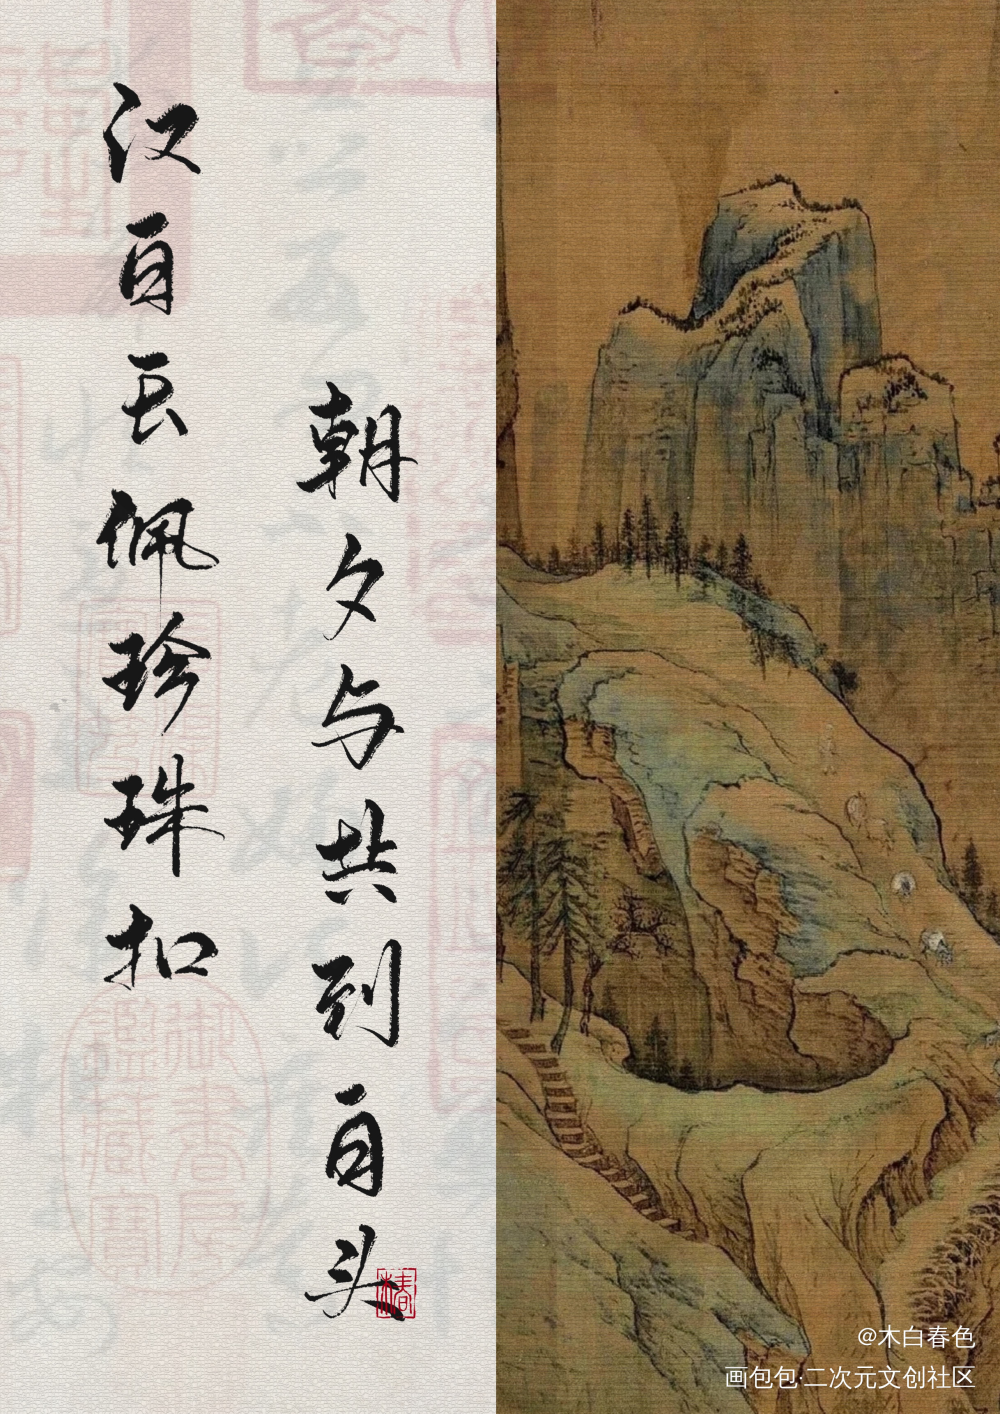 汉白玉佩珍珠扣
朝夕与共到白头
椿
御书房鉴藏宝
@木白春色
画包包·二次元文创社区